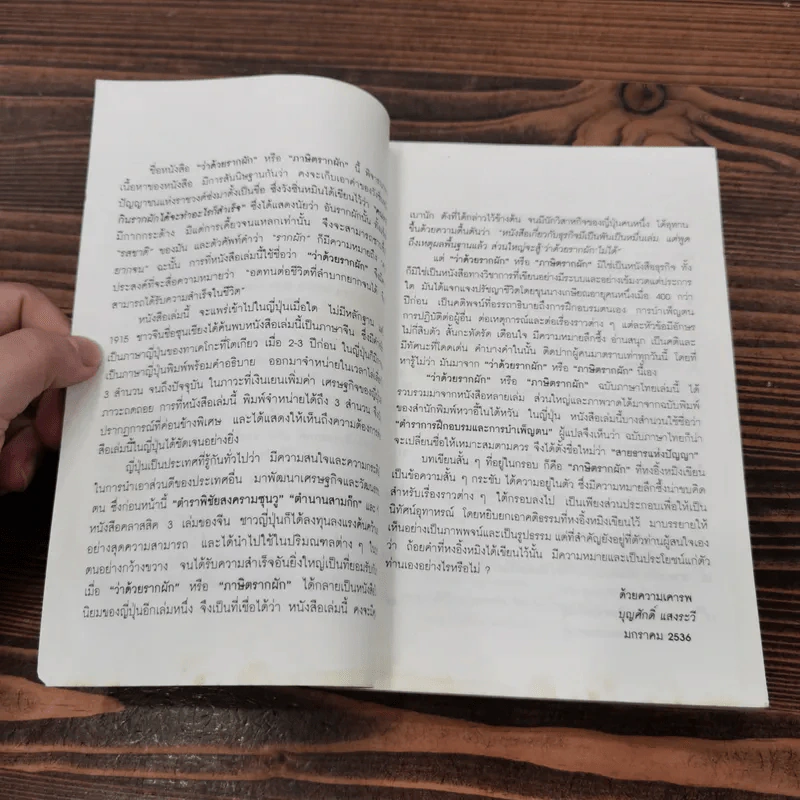 ชื่อหนังสือ "ว่าด้วยรากผัก" หรือ "ภาษิตรากผัก" นี้
เนื้อหาของหนังสือ มีการสันนิษฐานกันว่า คงจะเก็บเอาคำของ
ปัญญาชนแห่งราชวงศ์ซ่งมาตั้งเป็นชื่อ ซึ่งวังซิ่นหมินได้เขียนไว้ว่า
กินรากผักได้จะทำอะไรก็สำเร็จ" ซึ่งได้แสดงนัยว่า อันรากผักนั้น
มีกากกระด้าง มีแต่การเคี้ยวจนแหลกเท่านั้น จึงจะสามารถ
"รสชาติ" ของมัน และตัวศัพท์คำว่า "รากผัก" ก็มีความหมายถึง
ยากจน ฉะนั้น การที่หนังสือเล่มนี้ใช้ชื่อว่า "ว่าด้วยรากผัก"
ประสงค์ที่จะสื่อความหมายว่า "อดทนต่อชีวิตที่ลำบากยากจนได้
สามารถได้รับความสำเร็จในชีวิต"
หนังสือเล่มนี้ จะแพร่เข้าไปในญี่ปุ่นเมื่อใด ไม่มีหลักฐาน
1915 ชาวจีนชื่อซุนเชียงได้ค้นพบหนังสือเล่มนี้เป็นภาษาจีน
เป็นภาษาญี่ปุ่นของทาเคโกะที่โตเกียว เมื่อ 2-3 ปีก่อน ในญี่ปุ่น
เป็นภาษาญี่ปุ่นพิมพ์พร้อมคำอธิบาย ออกมาจำหน่ายในเวลา
3 สำนวน จนถึงปัจจุบัน ในภาวะที่เงินเยนเพิ่มค่า เศรษฐกิจของญี่ปุ่น
ภาวะถดถอย การที่หนังสือเล่มนี้ พิมพ์จำหน่ายได้ถึง 3 สำนวน
ปรากฏการณ์ที่ค่อนข้างพิเศษ และได้แสดงให้เห็นถึงความต้องการ
สือเล่มนี้ในญี่ปุ่นได้ชัดเจนอย่างยิ่ง
ญี่ปุ่นเป็นประเทศที่รู้กันทั่วไปว่า มีความสนใจและความ
ในการนำเอาส่วนดีของประเทศอื่น มาพัฒนาเศรษฐกิจและวัฒนธรรม
ตน ซึ่งก่อนหน้านี้ "ตำราพิชัยสงครามซุนวู" "ตำนานสามก๊ก" และ
หนังสือคลาสสิค 3 เล่มของจีน ชาวญี่ปุ่นก็ได้ลงทุนลงแรงค้นคว้า
อย่างสุดความสามารถ และได้นำไปใช้ในปริมณฑลต่าง ๆ
ตนอย่างกว้างขวาง จนได้รับความสำเร็จอันยิ่งใหญ่เป็นที่ยอมรับ
เมื่อ "ว่าด้วยรากผัก" หรือ "ภาษิตรากผัก" ได้กลายเป็นหนังสือ
นิยมของญี่ปุ่นอีกเล่มหนึ่ง จึงเป็นที่เชื่อได้ว่า หนังสือเล่มนี้ คงจะ
เบานัก ดังที่ได้กล่าวไว้ข้างต้น จนมีนักวิสาหกิจของญี่ปุ่นคนหนึ่ง ได้อุทาน
ขึ้นด้วยความตื้นตันว่า "หนังสือเกี่ยวกับธุรกิจมีเป็นพันเป็นหมื่นเล่ม แต่พูด
ถึงเหตุผลพื้นฐานแล้ว ส่วนใหญ่จะสู้ 'ว่าด้วยรากผัก' ไม่ได้"
แต่ "ว่าด้วยรากผัก" หรือ "ภาษิตรากผัก" มิใช่เป็นหนังสือธุรกิจ ทั้ง
ก็มิใช่เป็นหนังสือทางวิชาการที่เขียนอย่างมีระบบและอย่างเข้มงวดแต่ประการ
ใด มันได้แจกแจงปรัชญาชีวิตโดยขุนนางเกษียณอายุคนหนึ่งเมื่อ 400 กว่า
ปีก่อน เป็นคติพจน์ที่อรรถาธิบายถึงการฝึกอบรมตนเอง การบำเพ็ญตน
การปฏิบัติต่อผู้อื่น ต่อเหตุการณ์และต่อเรื่องราวต่าง ๆ แต่ละหัวข้อมีอักษร
ไม่กี่สิบตัว สั้นกะทัดรัด เตือนใจ มีความหมายลึกซึ้ง อ่านสนุก เป็นคติและ
มีทัศนะที่โดดเด่น คำบางคำในนั้น ติดปากผู้คนมาตราบเท่าทุกวันนี้ โดยที่
หารู้ไม่ว่า มันมาจาก "ว่าด้วยรากผัก" หรือ "ภาษิตรากผัก" นี้เอง
"ว่าด้วยรากผัก" หรือ "ภาษิตรากผัก" ฉบับภาษาไทยเล่มนี้ ได้
รวบรวมมาจากหนังสือหลายเล่ม ส่วนใหญ่และภาพวาดได้มาจากฉบับพิมพ์
ของสำนักพิมพ์หวาอี้ในไต้หวัน ในญี่ปุ่น หนังสือเล่มนี้บางสำนวนใช้ชื่อว่า
"ตำราการฝึกอบรมและการบำเพ็ญตน" ผู้แปลจึงเห็นว่า ฉบับภาษาไทยก็น่า
จะเปลี่ยนชื่อให้เหมาะสมตามควร จึงได้ตั้งชื่อใหม่ว่า "สายธารแห่งปัญญา"
บทเขียนสั้น ๆ ที่อยู่ในกรอบ ก็คือ "ภาษิตรากผัก" ที่หงอิ้งหมิงเขียน
เป็นข้อความสั้น ๆ กระชับ ได้ความอยู่ในตัว ซึ่งมีความหมายลึกซึ้งน่าขบคิด
สำหรับเรื่องราวต่าง ๆ ใต้กรอบลงไป เป็นเพียงส่วนประกอบเพื่อให้เป็น
นิทัศน์อุทาหรณ์ โดยหยิบยกเอาคติธรรมที่หงอิ้งหมิงเขียนไว้ มาบรรยายให้
เห็นอย่างเป็นภาพพจน์และเป็นรูปธรรม แต่ที่สำคัญยังอยู่ที่ตัวท่านผู้สนใจเอง
ว่า ถ้อยคำที่หงอิ้งหมิงได้เขียนไว้นั้น มีความหมายและเป็นประโยชน์แก่ตัว
ท่านเองอย่างไรหรือไม่ ?
ด้วยความเคารพ
บุญศักดิ์ แสงระวี
มกราคม 2536